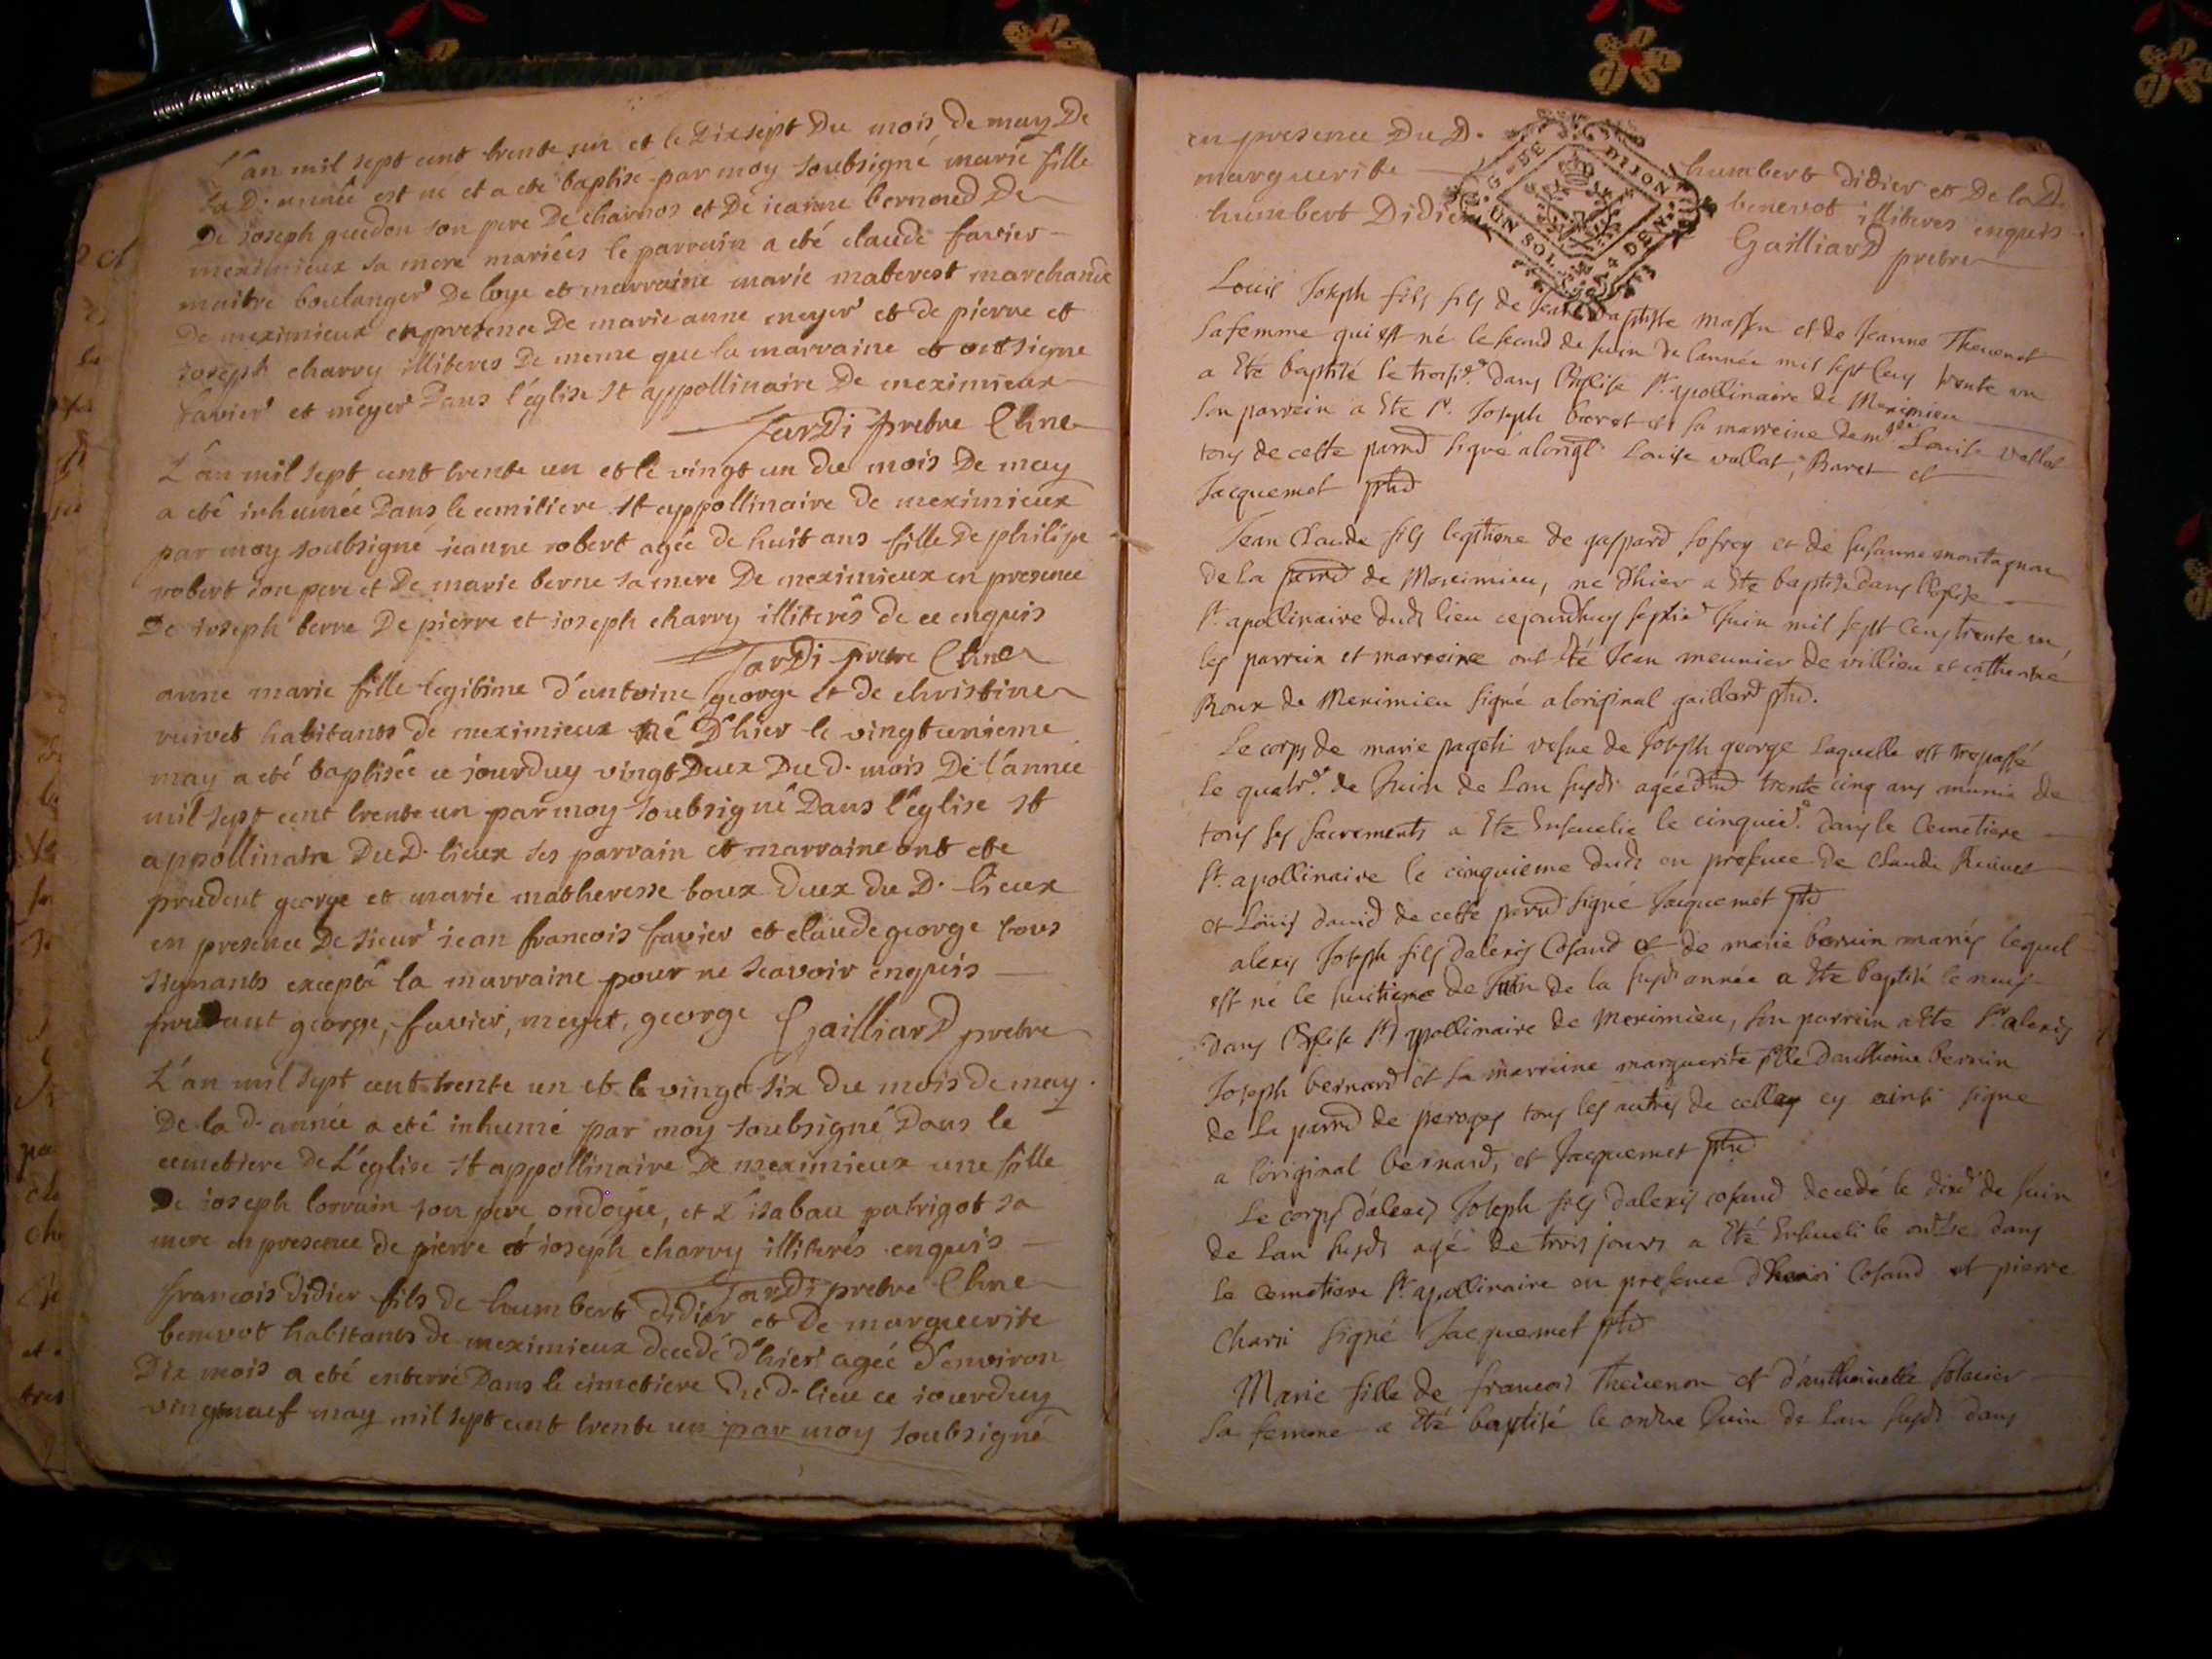 L'an mil sept cent trente un et le Dixsept Du mois de may De
la D. année est né et a eté baptisé par moy soubsigné marie fille
De joseph guedon son pere De charnos et De jeanne bernoud De
meximieux sa mere mariées le parrain a eté claude favier
maitre boulanger De loye et marraine marie materest marchande
De meximieux en presence De marie anne meyer et de pierre et
joseph charvy illiteres De meme que la marraine et ont signe
favier et meyer Dans l'église St appollinaire De meximieux
Jardi prebre Chne
L'an mil sept cent trente un et le vingt un du mois De may
a eté inhumée Dans le cemitiere St appollinaire de meximieux
par moy soubsigné jeanne robert agée de huit ans fille De philipe
robert son pere et De marie berne sa mere De meximieux en presence
De joseph berre De pierre et joseph charvy illiterés de ce enquis
Jardi prebre Chne
anne marie fille legitime d'antoine george et de christine
ruivet habitants de meximieux né D'hier le vingt unieme
may a eté baptisée ce jourduy vingt Deux Du d. mois De l'année
mil sept cent trente un par moy soubsigné Dans l'église St
appollinaire Du D. lieux ses parrain et marraine ont ete
prudent george et marie matheresse toux deux du D. lieux
en presence De sieur jean francois favier et claude george tous
signants excepté la marraine pour ne scavoir enquis
prudant george, favier, meyet, george Gailliard prebre
L'an mil sept cent trente un et le vingt six du mois de may
De la d. année a eté inhumé par moy soubsigné Dans le
cemetiere De L'eglise St appollinaire De meximieux une fille
De joseph lorrain son pere ondoyée, et L'isabau patrigot sa
mere en presence de pierre et joseph charvy illiterés enquis
Jardi prebre Chne
francois Didier fils de humbert Didier et De marguerite
benevot habitants de meximieux decedé d'hier agée d'environ
Dix mois a eté enterré Dans le cimetiere du d. lieu ce jourduy
vingtneuf may mil sept cent trente un par moy soubsigné
en presence Du D. humbert Didier et De la D.
marguerite benevot illiteres enquis
humbert Didier Gailliard prebre
G. DE DIJON
UN SOL 4 DEN.
Louis Joseph fils fils de Jean Baptiste Masson et de Jeanne Thevenet
sa femme qui est né le second de Juin de lannée mil sept Cens trente un
a Eté baptisé le troisie. dans l'Eglise St. apollinaire de Meximieu
son parrein a Ete Sr. Joseph Baret et sa marreine demlle. Louise vallat
tous de cette parrd signé aloriginl Louise vallat, Baret et
Jacquemet ptrd
Jean Claude fils legitime de gaspard Jofrey et de Susanne montagnon
de la parrd de Meximieu, né d'hier a Ete baptisé dans l'Eglise
St. apollinaire dudt lieu cejourdhuy septie Juin mil sept Cens trente un,
les parrein et marreine ont Eté Jean meunier de villieu et catherine
Roux de Meximieu signé aloriginal gaillard ptrd.
Le corps de marie pageti vefue de Joseph george laquelle est trepassé
le quatre. de Juin de Lan susdt. agée denvd trente cinq ans munie de
tous ses sacrements a Ete Ensevelie le cinquie. dans le Cemetiere
St. apollinaire le cinquieme dudt en presence de Claude Ruivet
et Louis david de cette parrd signé Jacquemet ptrd
alexis Joseph fils dalexis Cosand et de marie bernin mariés lequel
est né le huitieme de Juin de la susdt année a Ete baptisé le neuf
dans l'Eglise St apollinaire de Meximieu, son parrein a Ete Sr. alexis
Joseph bernard et sa marreine marguerite fille danthoine bernin
de la parrd de peroges tous les autres de celle cy ainsi signe
a loriginal bernard, et Jacquemet ptrd
Le corps d'alexis Joseph fils dalexis cosand decedé le dixe de Juin
de Lan susdt agé de trois jours a Eté Enseveli le onze dans
le Cemetiere St. apollinaire en presence d'henri Cosand et pierre
Charvi signé Jacquemet ptrd
Marie fille de francois Thevenon et d'anthoinette
sa femme a Eté baptisé le onze Juin de Lan susdt dans